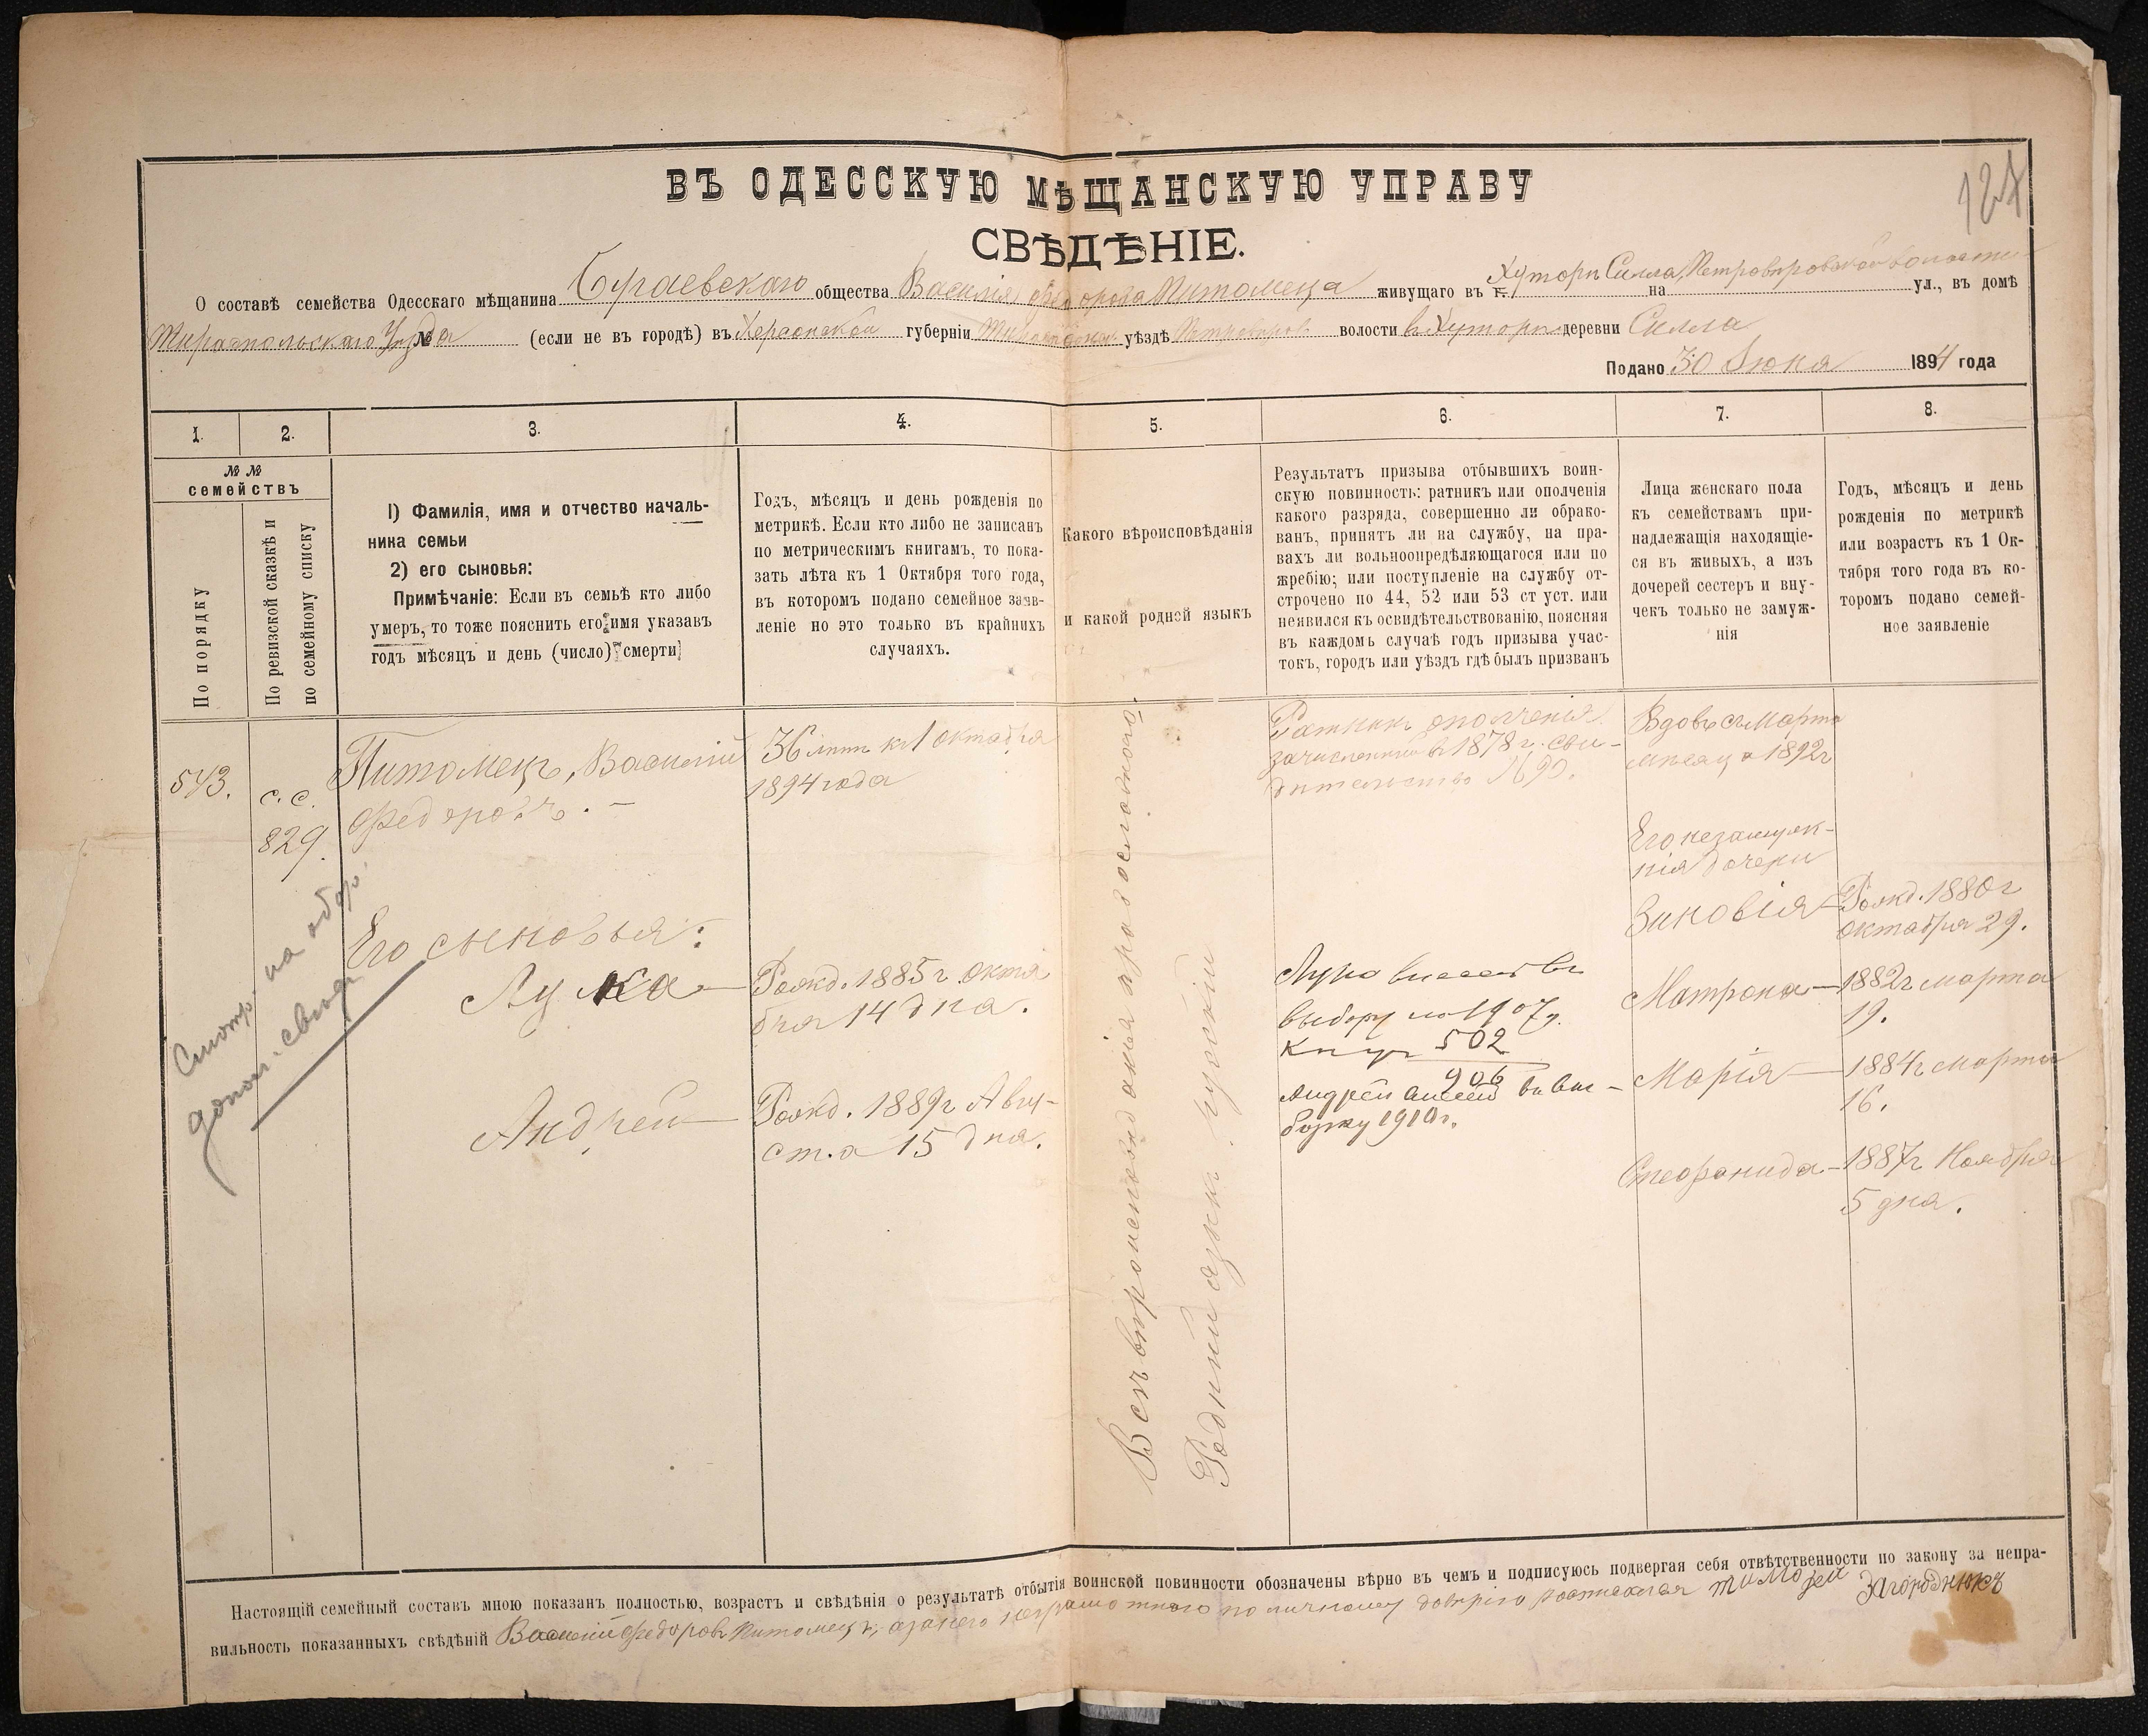 127
ВЪ ОДЕССКУЮ МѢЩАНСКУЮ УПРАВУ
СВѢДѢНІЕ.
О составѣ семейства Одесскаго мѣщанина Бугаевскаго общества Василія Федорова Питомеца живущаго въ г. Хутори Силла, Петровѣровской волости на ул., въ домѣ
Тираспольскаго Уѣзда № (если не въ городѣ) въ Херсонской губерніи Тираспольск. уѣздѣ Петровѣров. волости в Хутори деревни Силла
Подано 30 Іюня 1894 года
1.
2.
3.
4.
5.
6.
7.
8.
№№
семействъ
По порядку
По ревизской сказкѣ и
по семейному списку
1) Фамилія, имя и отчество началь-
ника семьи
2) его сыновья:
Примѣчаніе: Если въ семьѣ кто либо
умеръ, то тоже пояснить его имя указавъ
годъ мѣсяцъ и день (число) смерти
Годъ, мѣсяцъ и день рожденія по
метрикѣ. Если кто либо не записанъ
по метрическимъ книгамъ, то пока-
зать лѣта къ 1 Октября того года,
въ которомъ подано семейное заяв-
леніе но это только въ крайнихъ
случаяхъ.
Какого вѣроисповѣданія
и какой родной языкъ
Результатъ призыва отбывшихъ воин-
скую повинность: ратникъ или ополченія
какого разряда, совершенно ли обрако-
ванъ, принятъ ли на службу, на пра-
вахъ ли вольноопредѣляющагося или по
жребію; или поступленіе на службу от-
строчено по 44, 52 или 53 ст уст. или
неявился къ освидѣтельствованію, поясняя
въ каждомъ случаѣ годъ призыва учас-
токъ, городъ или уѣздъ гдѣ былъ призванъ
Лица женскаго пола
къ семействамъ при-
надлежащія находящіе-
ся въ живыхъ, а изъ
дочерей сестеръ и вну-
чекъ только не замуж-
нія
Годъ, мѣсяцъ и день
рожденія по метрикѣ
или возрастъ къ 1 Ок-
тября того года въ ко-
торомъ подано семей-
ное заявленіе
543.
с. с.
829.
Питомецъ, Василій
Федоровъ. –
36 лѣтъ к 1 октября
1894 года
Всѣ вѣроисповѣданія православнаго.
Родный языкъ русскій
Ратникъ ополченія
зачисленный в 1878 г. сви-
дительство № 90.
Вдовъ съ Марта
мѣсяца 1892 г
Его незамуж-
нія дочери
Зиновія – Рожд. 1880 г
октября 29.
Смотр. на обор.
допол. свѣд.
Его сыновья:
Лука – Рожд. 1885 г. октя
бря 14 дня.
Лука внесенъ въ
выборку по 1907 г.
502
906
Матрона – 1882 г марта
19.
Марія – 1884 г марта
16.
Андрей – Рожд. 1889 г Авгу-
ста 15 дня.
Андрей внесенъ въ вы-
борку 1910 г.
Стефанида – 1887 г Ноября
5 дня.
Настоящій семейный составъ мною показанъ полностью, возрастъ и свѣдѣнія о результатѣ отбытія воинской повинности обозначены вѣрно въ чемъ и подписуюсь подвергая себя отвѣтственности по закону за непра-
вильность показанныхъ свѣдѣній Василій Федоровъ Питомецъ, а за него неграмотнаго по личному довѣрію росписался Тимофей Загороднюкъ